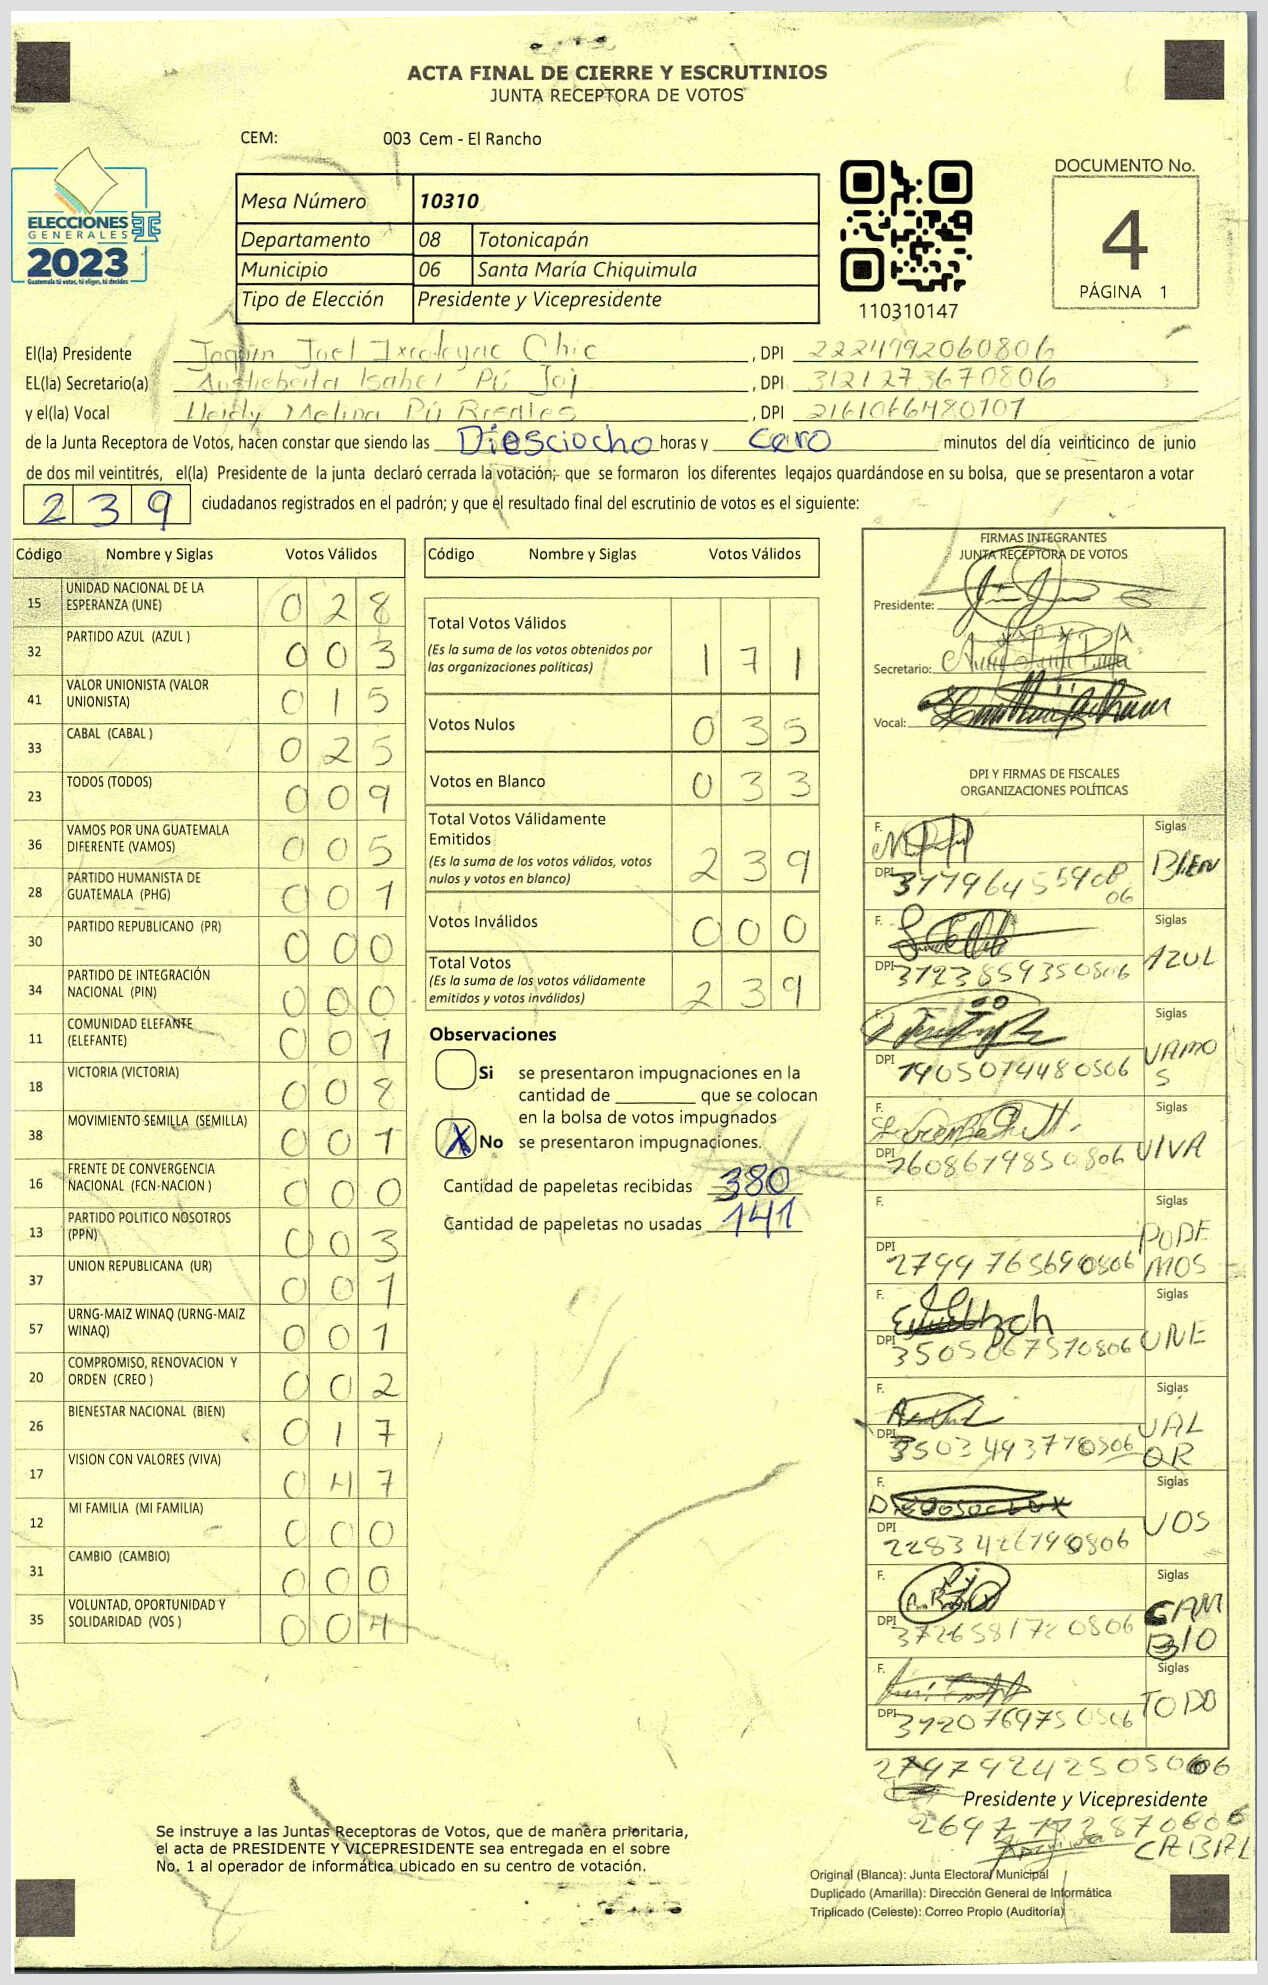 ACTA FINAL DE CIERRE Y ESCRUTINIOS
JUNTA RECEPTORA DE VOTOS
CEM: 003 Cem - El Rancho
ELECCIONES
GENERALES
2023
Guatemala tú votas, tú eliges, tú decides
Mesa Número 10310
Departamento 08 Totonicapán
Municipio 06 Santa María Chiquimula
Tipo de Elección Presidente y Vicepresidente
110310147
DOCUMENTO No.
4
PÁGINA 1
El(la) Presidente Joel Chic , DPI 2224792060806
EL(la) Secretario(a) Isabel Pú , DPI 3121273670806
y el(la) Vocal Heidy Melina Pú Rosales , DPI 2161066480101
de la Junta Receptora de Votos, hacen constar que siendo las Diesciocho horas y cero minutos del día veinticinco de junio
de dos mil veintitrés, el(la) Presidente de la junta declaró cerrada la votación; que se formaron los diferentes legajos guardándose en su bolsa, que se presentaron a votar
239 ciudadanos registrados en el padrón; y que el resultado final del escrutinio de votos es el siguiente:
Código Nombre y Siglas Votos Válidos
15 UNIDAD NACIONAL DE LA ESPERANZA (UNE) 028
32 PARTIDO AZUL (AZUL ) 003
41 VALOR UNIONISTA (VALOR UNIONISTA) 015
33 CABAL (CABAL ) 025
23 TODOS (TODOS) 009
36 VAMOS POR UNA GUATEMALA DIFERENTE (VAMOS) 005
28 PARTIDO HUMANISTA DE GUATEMALA (PHG) 001
30 PARTIDO REPUBLICANO (PR) 000
34 PARTIDO DE INTEGRACIÓN NACIONAL (PIN) 000
11 COMUNIDAD ELEFANTE (ELEFANTE) 001
18 VICTORIA (VICTORIA) 008
38 MOVIMIENTO SEMILLA (SEMILLA) 001
16 FRENTE DE CONVERGENCIA NACIONAL (FCN-NACION ) 000
13 PARTIDO POLITICO NOSOTROS (PPN) 003
37 UNION REPUBLICANA (UR) 001
57 URNG-MAIZ WINAQ (URNG-MAIZ WINAQ) 001
20 COMPROMISO, RENOVACION Y ORDEN (CREO ) 002
26 BIENESTAR NACIONAL (BIEN) 017
17 VISION CON VALORES (VIVA) 047
12 MI FAMILIA (MI FAMILIA) 000
31 CAMBIO (CAMBIO) 000
35 VOLUNTAD, OPORTUNIDAD Y SOLIDARIDAD (VOS ) 004
Código Nombre y Siglas Votos Válidos
Total Votos Válidos 171
(Es la suma de los votos obtenidos por
las organizaciones políticas)
Votos Nulos 035
Votos en Blanco 033
Total Votos Válidamente
Emitidos 239
(Es la suma de los votos válidos, votos
nulos y votos en blanco)
Votos Inválidos 000
Total Votos 239
(Es la suma de los votos válidamente
emitidos y votos inválidos)
Observaciones
Si se presentaron impugnaciones en la
cantidad de ________ que se colocan
en la bolsa de votos impugnados
X No se presentaron impugnaciones.
Cantidad de papeletas recibidas 380
Cantidad de papeletas no usadas 141
FIRMAS INTEGRANTES
JUNTA RECEPTORA DE VOTOS
Presidente:
Secretario:
Vocal:
DPI Y FIRMAS DE FISCALES
ORGANIZACIONES POLÍTICAS
F. Siglas BIEN
DPI
F. Siglas AZUL
DPI 3723859350806
F. Siglas VAMOS
DPI 1905074480506
F. Siglas VIVA
DPI 1608679850806
F. Siglas PODEMOS
DPI 2799765690806
F. Siglas UNE
DPI 3505067570806
F. Siglas VALOR
DPI 3503493770506
F. Siglas VOS
DPI 2283426790806
F. Siglas CAMBIO
DPI 3726581720806
F. Siglas TODO
DPI
Presidente y Vicepresidente
CABAL
Se instruye a las Juntas Receptoras de Votos, que de manera prioritaria,
el acta de PRESIDENTE Y VICEPRESIDENTE sea entregada en el sobre
No. 1 al operador de informática ubicado en su centro de votación.
Original (Blanca): Junta Electoral Municipal
Duplicado (Amarilla): Dirección General de Informática
Triplicado (Celeste): Correo Propio (Auditoría)